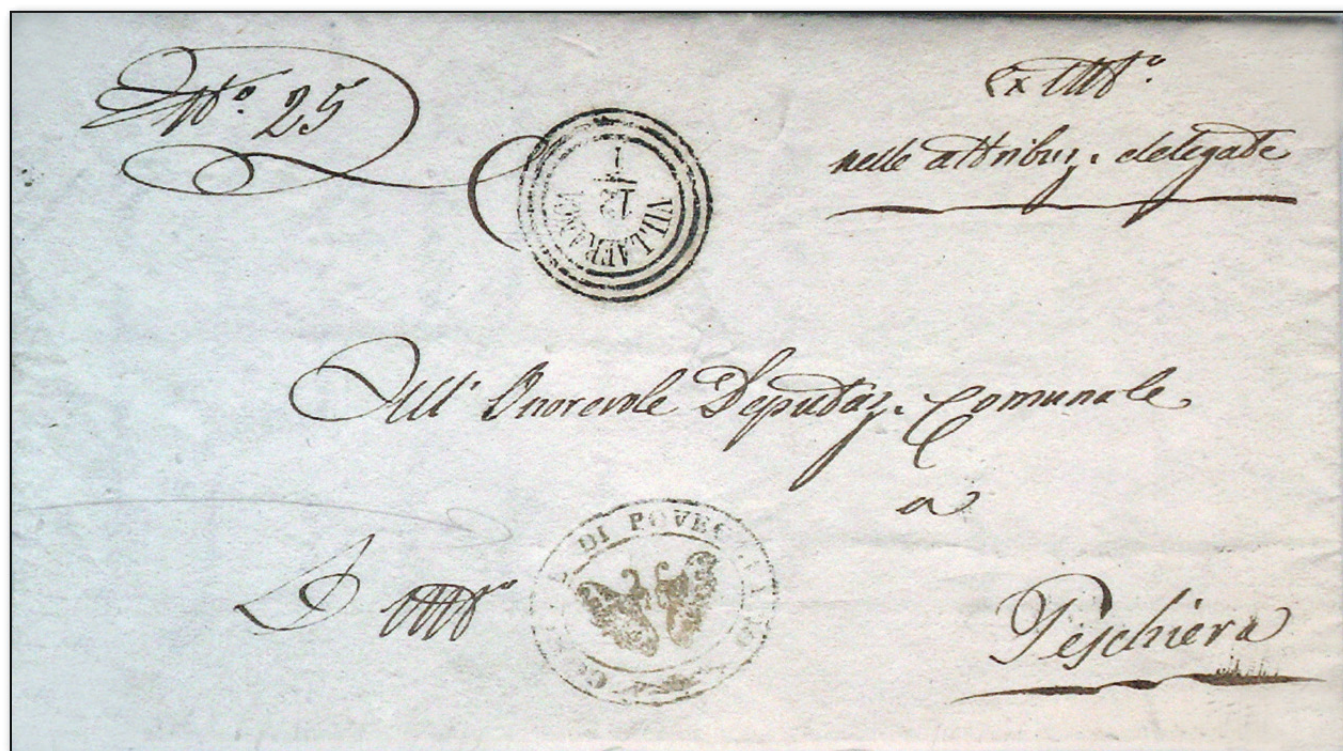 N.° 25
Ex Uff.°
nelle attribuz. delegate
VILLAFRANCA
12
1
All' Onorevole Deputaz. Comunale
a
D' Uff.°
DI POVEGLIANO
Peschiera